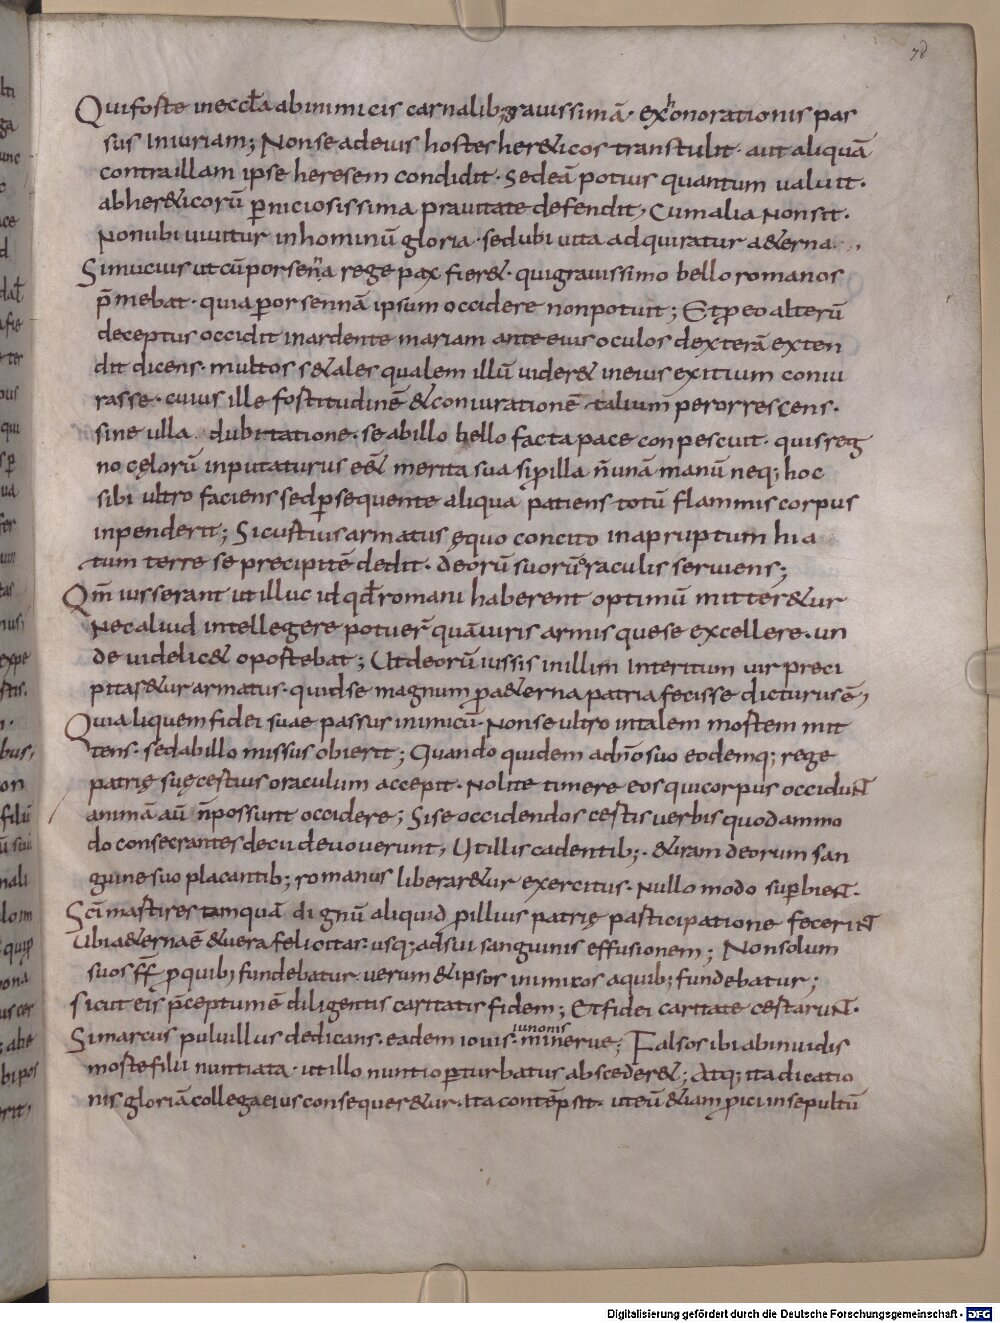 78
Qui forte in eccl̄a ab inimicis carnalib; grauissimā · exhonorationis pas
sus iniuriam; Non se ad eius hostes her&icos transtulit · aut aliquā
contra illam ipse heresem condidit · Sed eā potius quantum ualuit ·
ab her&icorū p̄niciosissima prauitate defendit, Cum alia non sit ·
Non ubi uiuitur in hominū gloria · sed ubi uita adquiratur a&erna ·,
Si mucius ut cū porsenna rege pax fier& · qui grauissimo bello romanos
p̄mebat · quia porsennā ipsum occidere non potuit; Et ꝓ eo alterū
deceptus occidit in ardente mariam ante eius oculos dexterā exten
dit dicens · multos se tales qualem illū uider& in eius exitium coniu
rasse · cuius ille fortitudinē & coniurationē talium perorrescens ·
sine ulla dubitatione · se ab illo bello facta pace conpescuit · quis reg
no cęlorū inputaturus eēt merita sua si ꝓ illa n̄ unā manū neq; hoc
sibi ultro faciens sed p̄sequente aliqua patiens totū flammis corpus
inpenderit; Si curtius armatus ęquo concito in apruptum hia
tum terre se precipitē dedit · deorū suorū oraculis seruiens;
Qm̄ iusserant ut illuc id qd̄ romani haberent optimū mitter&ur
Nec aliud intellegere potuer̄ quā uiris armisque se excellere · un
de uidelic& oportebat; Ut deorū iussis in illum interitum uir preci
pitar&ur armatus · quid se magnum ꝓ a&erna patria fecisse dicturus ē,
Qui aliquem fidei suae passus inimicū · Non se ultro in talem mortem mit
tens · sed ab illo missus obierit; Quando quidem a dn̄o suo eodemq; rege
patrię suę certius oraculum accepit · Nolite timere eos qui corpus occidunt
animā aū n̄ possunt occidere; Si se occidendos certis uerbis quodammo
do consecrantes decii deuouerunt, Ut illis cadentib; · & iram deorum san
guine suo placantib; romanus liberar&ur exercitus · Nullo modo sup̄bient ·
Sc̄i martires tamquā dignū aliquid ꝓ illius patrię participatione fecerint
Ubi a&erna ē & uera felicitas · usq; ad sui sanguinis effusionem; Non solum
suos ff̄ ꝓ quib; fundebatur uerum & ipsos inimicos a quib; fundebatur;
sicut eis p̄ceptum ē diligentis caritatis fidem; Et fidei caritate certarunt ·
Si marcus puluillus dedicans · eadem iouis · iunonis minerue; Falso sibi ab inuidis
morte filii nuntiata · ut illo nuntio p̄turbatus absceder&; Atq; ita dicatio
nis gloriā collega eius consequer&ur · Ita contēpsit · ut eū &iam ꝓici insepultū
Digitalisierung gefördert durch die Deutsche Forschungsgemeinschaft - DFG